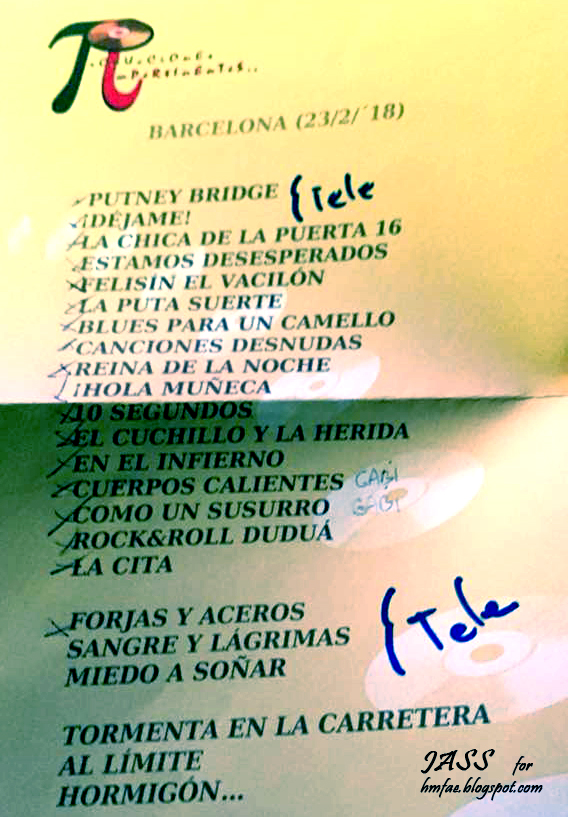 PRODUCCIONES
IMPERTINENTES..
BARCELONA (23/2/´18)
PUTNEY BRIDGE { Tele
¡DÉJAME!
LA CHICA DE LA PUERTA 16
ESTAMOS DESESPERADOS
FELISÍN EL VACILÓN
LA PUTA SUERTE
BLUES PARA UN CAMELLO
CANCIONES DESNUDAS
REINA DE LA NOCHE
¡HOLA MUÑECA
10 SEGUNDOS
EL CUCHILLO Y LA HERIDA
EN EL INFIERNO
CUERPOS CALIENTES GABI
COMO UN SUSURRO GABI
ROCK&ROLL DUDUÁ
LA CITA
FORJAS Y ACEROS
SANGRE Y LÁGRIMAS { Tele
MIEDO A SOÑAR
TORMENTA EN LA CARRETERA
AL LÍMITE
HORMIGÓN...
JASS for
hmfae.blogspot.com